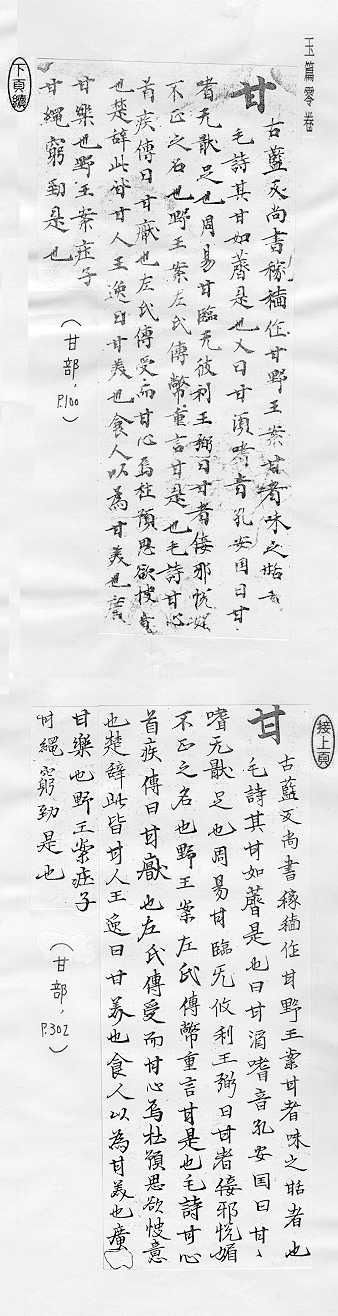 玉篇零卷
甘
古藍反尚書稼穡作甘野王案甘者味之甛者
毛詩其甘如薺是也又曰甘酒嗜音孔安国曰甘
嗜无猒足也周易甘臨无攸利王弼曰甘者佞邪悅媚
不正之名也野王案左氏傳幣重言甘是也毛詩甘心
首疾傳曰甘厭也左氏傳受而甘心焉杜預思欲快意
也楚辞此皆甘人王逸曰甘美也食人以為甘美也
甘樂也野王案庄子
甘繩窮勁是也
(甘部,P.100)
下頁續
接上頁
甘
古藍反尚書稼穡作甘野王案甘者味之甛者也
毛詩其甘如薺是也曰甘酒嗜音孔安国曰甘〻
嗜无猒足也周易甘臨无攸利王弼曰甘者佞邪悅媚
不正之名也野王案左氏傳幣重言甘是也毛詩甘心
首疾傳曰甘厭也左氏傳受而甘心焉杜預思欲快意
也楚辞此皆甘人王逸曰甘美也食人以為甘美也廣
甘樂也野王案庄子
甘繩窮勁是也
(甘部,P.302)